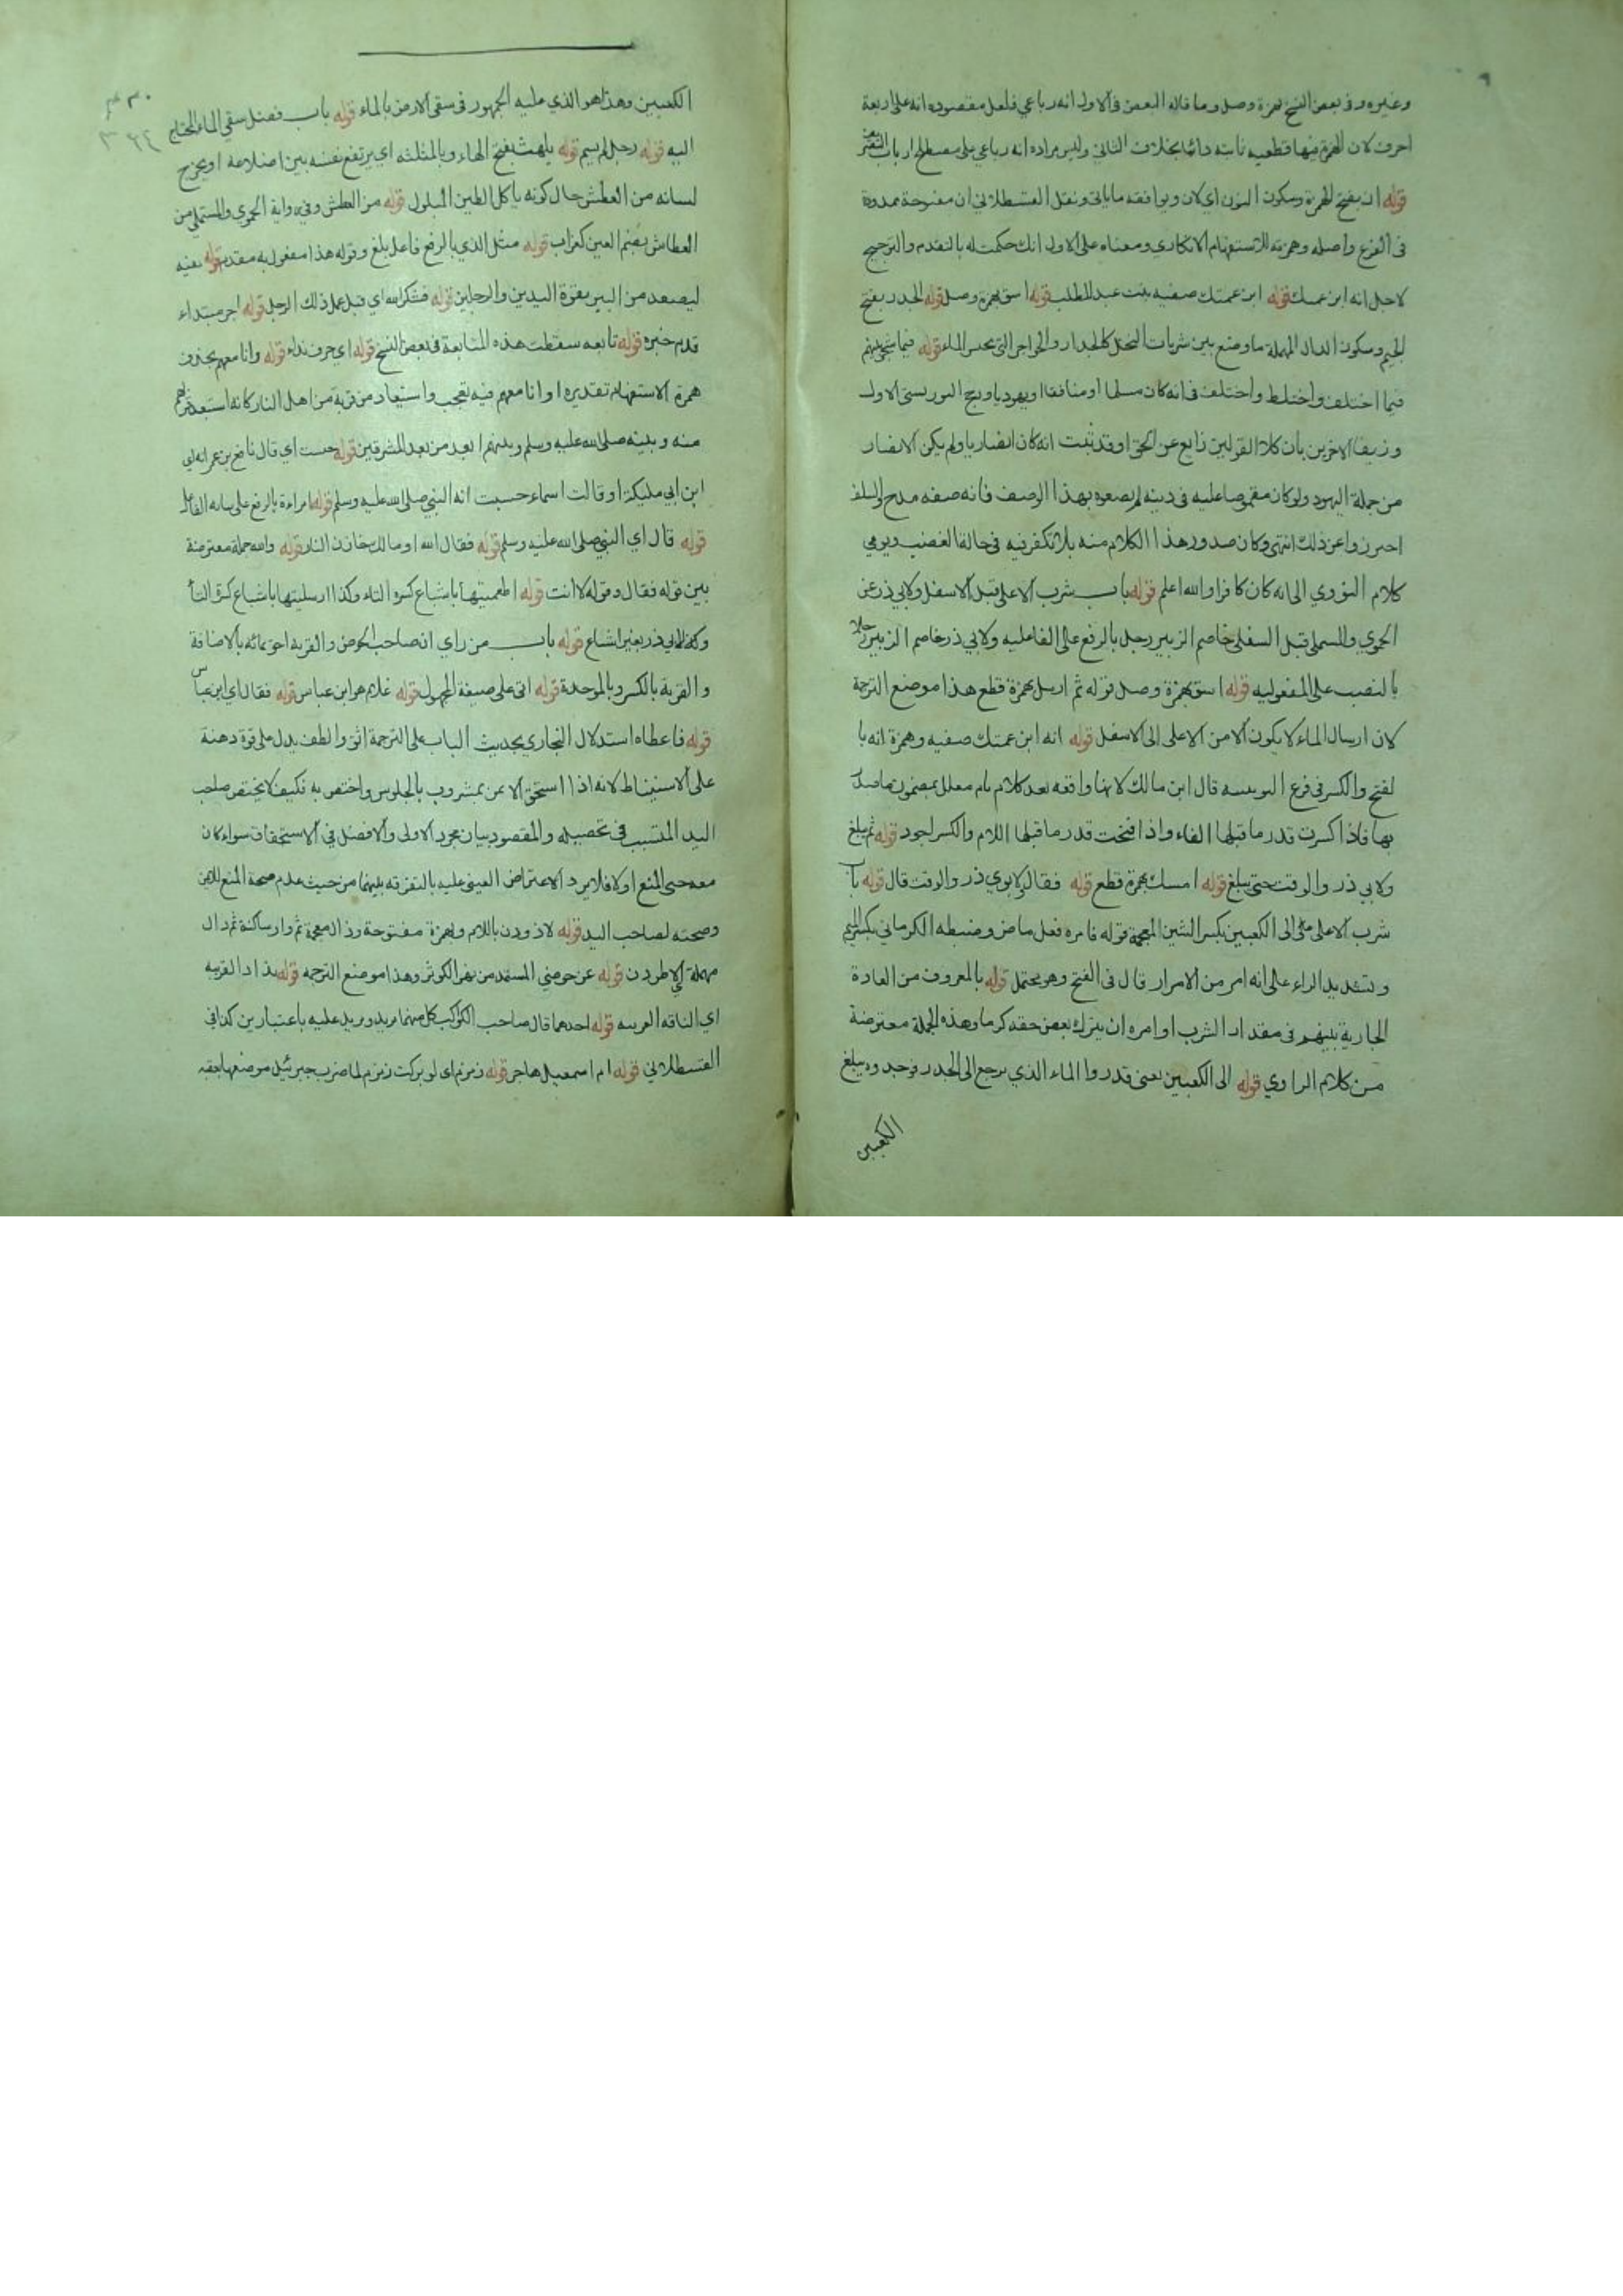 وغيره وفي بعض النسخ بهمزة وصل وما قاله البعض في الاول انه رباعي فلعل مقصوده انه على اربعة
احرف لان الهمزة فيها قطعيه ثابته دائما بخلاف الثاني وليس مراده انه رباعي على مصطلح ارباب
قوله ان بفتح الهمزة وسكون النون اي لان ويوافقه ما ياتي ونقل القسطلاني ان مفتوحة ممدودة
في الفرع واصله وهمزته للاستفهام الانكاري ومعناه على الاول انك حكمت له بالتقدم والترجيح
لاجل انه ابن عمتك قوله ابن عمتك صفيه بنت عبد المطلب قوله اسق بهمزة وصل قوله الجدر بفتح
الجيم وسكون الدال المهملة ما وضع بين شربات النخل كالجدار والحواجز التي تحبس الماء قوله فيما شجر بينهم
فيما اختلف واختلط واختلف في انه كان مسلما او منافقا او يهوديا ورجح التوربشتي الاول
وزيف الاخرين بان كلا القولين زايغ عن الحق اوقد ثبت انه كان انصاريا ولم يكن الانصار
من جملة اليهود ولو كان مغموصا عليه في دينه لم يصفوه بهذا الوصف فانه صفه مدح والسلف
احترزوا عن ذلك انتهى وكان صدور هذا الكلام منه بلا تكفر فيه في حالة الغضب ويومي
كلام النووي الى انه كان كافرا والله اعلم قوله باب شرب الاعلى قبل الاسفل ولابي ذر عن
الحموي والمستملي قبل السفلى خاصم الزبير رجل بالرفع على الفاعليه ولابي ذر خاصم الزبير رجلا
بالنصب على المفعوليه قوله اسق بهمزة وصل قوله ثم ارسل بهمزة قطع هذا موضع الترجمة
لان ارسال الماء لا يكون الا من الاعلى الى الاسفل قوله انه ابن عمتك صفيه وهمزة انه با
لفتح والكسر في فرع اليونينيه قال ابن مالك لانها واقعه بعد كلام تام معلل بمضمون ما صدر
بها فاذا كسرت قدر ما قبلها الفاء واذا فتحت قدر ما قبلها اللام والكسر اجود قوله ثم يبلغ
ولابي ذر والوقت حتى يبلغ قوله امسك بهمزة قطع قوله فقال ولابوي ذر والوقت قال قوله باب
شرب الاعلى الى الكعبين بكسر الشين المعجمة قوله فامره فعل ماض وضبطه الكرماني بكسر الميم
وتشديد الراء على انه امر من الامرار قال في الفتح وهو محتمل قوله بالمعروف من العادة
الجارية بينهم في مقدار الشرب او امره ان يترك بعض حقه كرما وهذه الجملة معترضة
من كلام الراوي قوله الى الكعبين يعني قدروا الماء الذي يرجع الى الجدر فوجدوه يبلغ
الكعبين
الكعبين وهذا هو الذي عليه الجمهور في سقى الارض بالماء قوله باب فضل سقي الماء للمحتاج
اليه قوله رجل لم يسم قوله يلهث بفتح الهاء وبالمثلثه اي يرتفع نفسه بين اضلاعه او يخرج
لسانه من العطش حال كونه ياكل الطين المبلول قوله من العطش وفي رواية الحموي والمستملي من
العطاش بضم العين كغراب قوله مثل الذي بالرفع فاعل بلغ وقوله هذا مفعول به مقدم قوله بفيه
ليصعد من البير بقوة اليدين والرجلين قوله فشكر الله اي قبل عمل ذلك الرجل قوله اجر مبتداء
قدم خبره قوله تابعه سقطت هذه المتابعة في بعض النسخ قوله اي حرف نداء قوله وانا معهم بحذف
همزة الاستفهام تقديره او انا معهم فيه تعجب واستبعاد من قربه من اهل النار كانه استبعد قربهم
منه وبينه صلى الله عليه وسلم وبينهم ابعد من بعد المشرقين قوله حسبت اي قال نافع بن عمر انه اي
ابن ابي مليكة او قالت اسماء حسبت انه النبي صلى الله عليه وسلم قوله امراءة بالرفع على
قوله قال اي النبي صلى الله عليه وسلم قوله فقال الله او مالك خازن النار قوله والله جملة معترضة
بين قوله فقال وقوله لا انت قوله اطعمتيها باشباع كسرة التاء وكذا ارسلتيها باشباع كسرة التا
وكذا لابي ذر بغير اشباع قوله باب من راي ان صاحب الحوض والقربة احق بمائه بالاضافة
والقربة بالكسر وبالموحدة قوله اتي على صيغة المجهول قوله غلام هو ابن عباس قوله فقال اي ابن عباس
قوله فاعطاه استدلال البخاري بحديث الباب على الترجمة اثق والطف يدل على قوة دهنة
على الاستنباط لانه اذا استحق الا عن بمشروب بالجلوس واختص به فكيف لا يختص صاحب
اليد المتسبب في تحصيله والمقصود بيان مجرد الاولى والافضل في الاستحقاق سواء كان
معه حق المنع او لا فلا يرد الاعتراض العيني عليه بالتفرقه بينهما من حيث عدم صحة المنع للايمن
وصحته لصاحب اليد قوله لاذودن باللام والهمزة مفتوحة وذال معجمة ثم واو ساكنة ثم دال
مهملة اي لاطردن قوله عن حوضي المستمد من نهر الكوثر وهذا موضع الترجمه قوله تذاد الغريبه
اي الناقه الغريبه قوله احدهما قال صاحب الكواكب كل منهما مزيد ومزيد عليه باعتبارين كذا في
القسطلاني قوله ام اسمعيل هاجر قوله زمزم اي لو تركت زمزم لما ضرب جبرئيل موضعها بعقبه